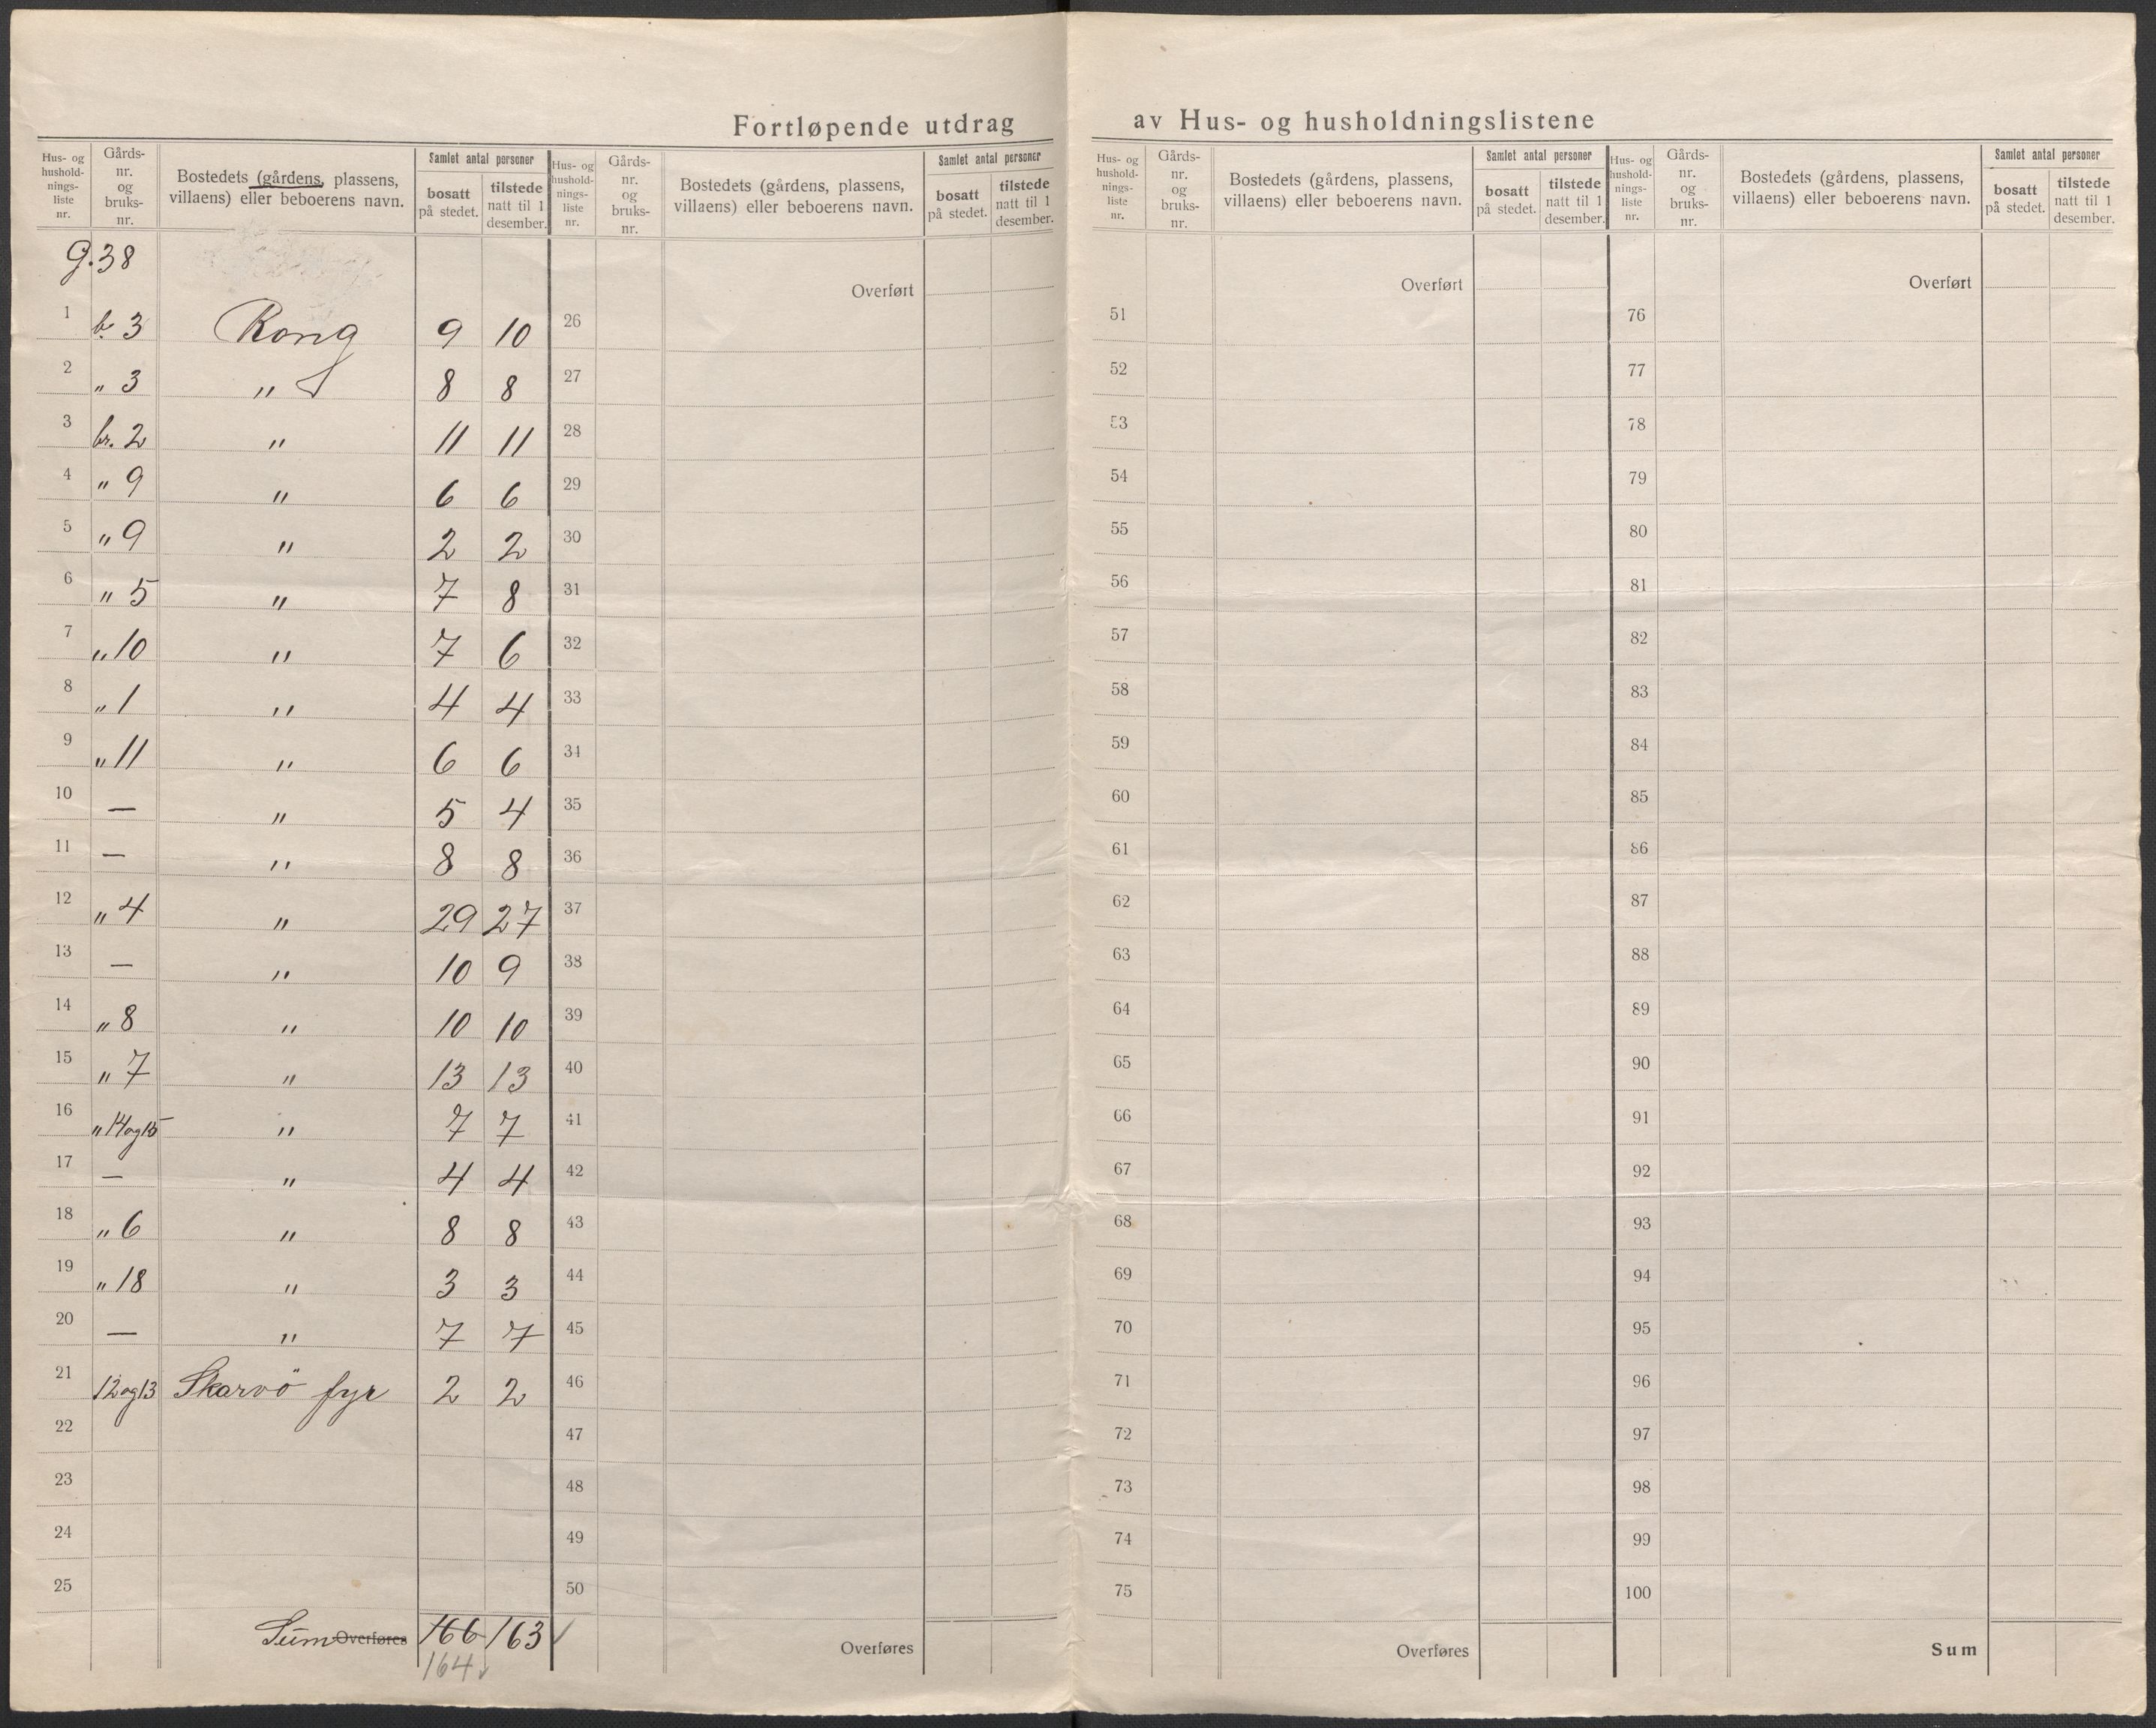 Fortløpende utdrag av Hus- og husholdningslistene
Hus- og hushold-nings-liste nr. Gårds-nr. og bruks-nr. Bostedets (gårdens, plassens, villaens) eller beboerens navn. Samlet antal personer bosatt på stedet. tilstede natt til 1 desember.
Hus- og hushold-nings-liste nr. Gårds-nr. og bruks-nr. Bostedets (gårdens, plassens, villaens) eller beboerens navn. Samlet antal personer bosatt på stedet. tilstede natt til 1 desember.
Hus- og hushold-nings-liste nr. Gårds-nr. og bruks-nr. Bostedets (gårdens, plassens, villaens) eller beboerens navn. Samlet antal personer bosatt på stedet. tilstede natt til 1 desember.
Hus- og hushold-nings-liste nr. Gårds-nr. og bruks-nr. Bostedets (gårdens, plassens, villaens) eller beboerens navn. Samlet antal personer bosatt på stedet. tilstede natt til 1 desember.
G. 38
1 b. 3 Rong 9 10
2 " 3 " 8 8
3 br. 2 " 11 11
4 " 9 " 6 6
5 " 9 " 2 2
6 " 5 " 7 8
7 " 10 " 7 6
8 " 1 " 4 4
9 " 11 " 6 6
10 — " 5 4
11 — " 8 8
12 " 4 " 29 27
13 — " 10 9
14 " 8 " 10 10
15 " 7 " 13 13
16 " 14 og 15 " 7 7
17 — " 4 4
18 " 6 " 8 8
19 " 18 " 3 3
20 — " 7 7
21 12 og 13 Skarvö fyr 2 2
22
23
24
25
Sum Overføres 166 163 ✓
164 ✓
Overført
26
27
28
29
30
31
32
33
34
35
36
37
38
39
40
41
42
43
44
45
46
47
48
49
50
Overføres
Overført
51
52
53
54
55
56
57
58
59
60
61
62
63
64
65
66
67
68
69
70
71
72
73
74
75
Overføres
Overført
76
77
78
79
80
81
82
83
84
85
86
87
88
89
90
91
92
93
94
95
96
97
98
99
100
Sum